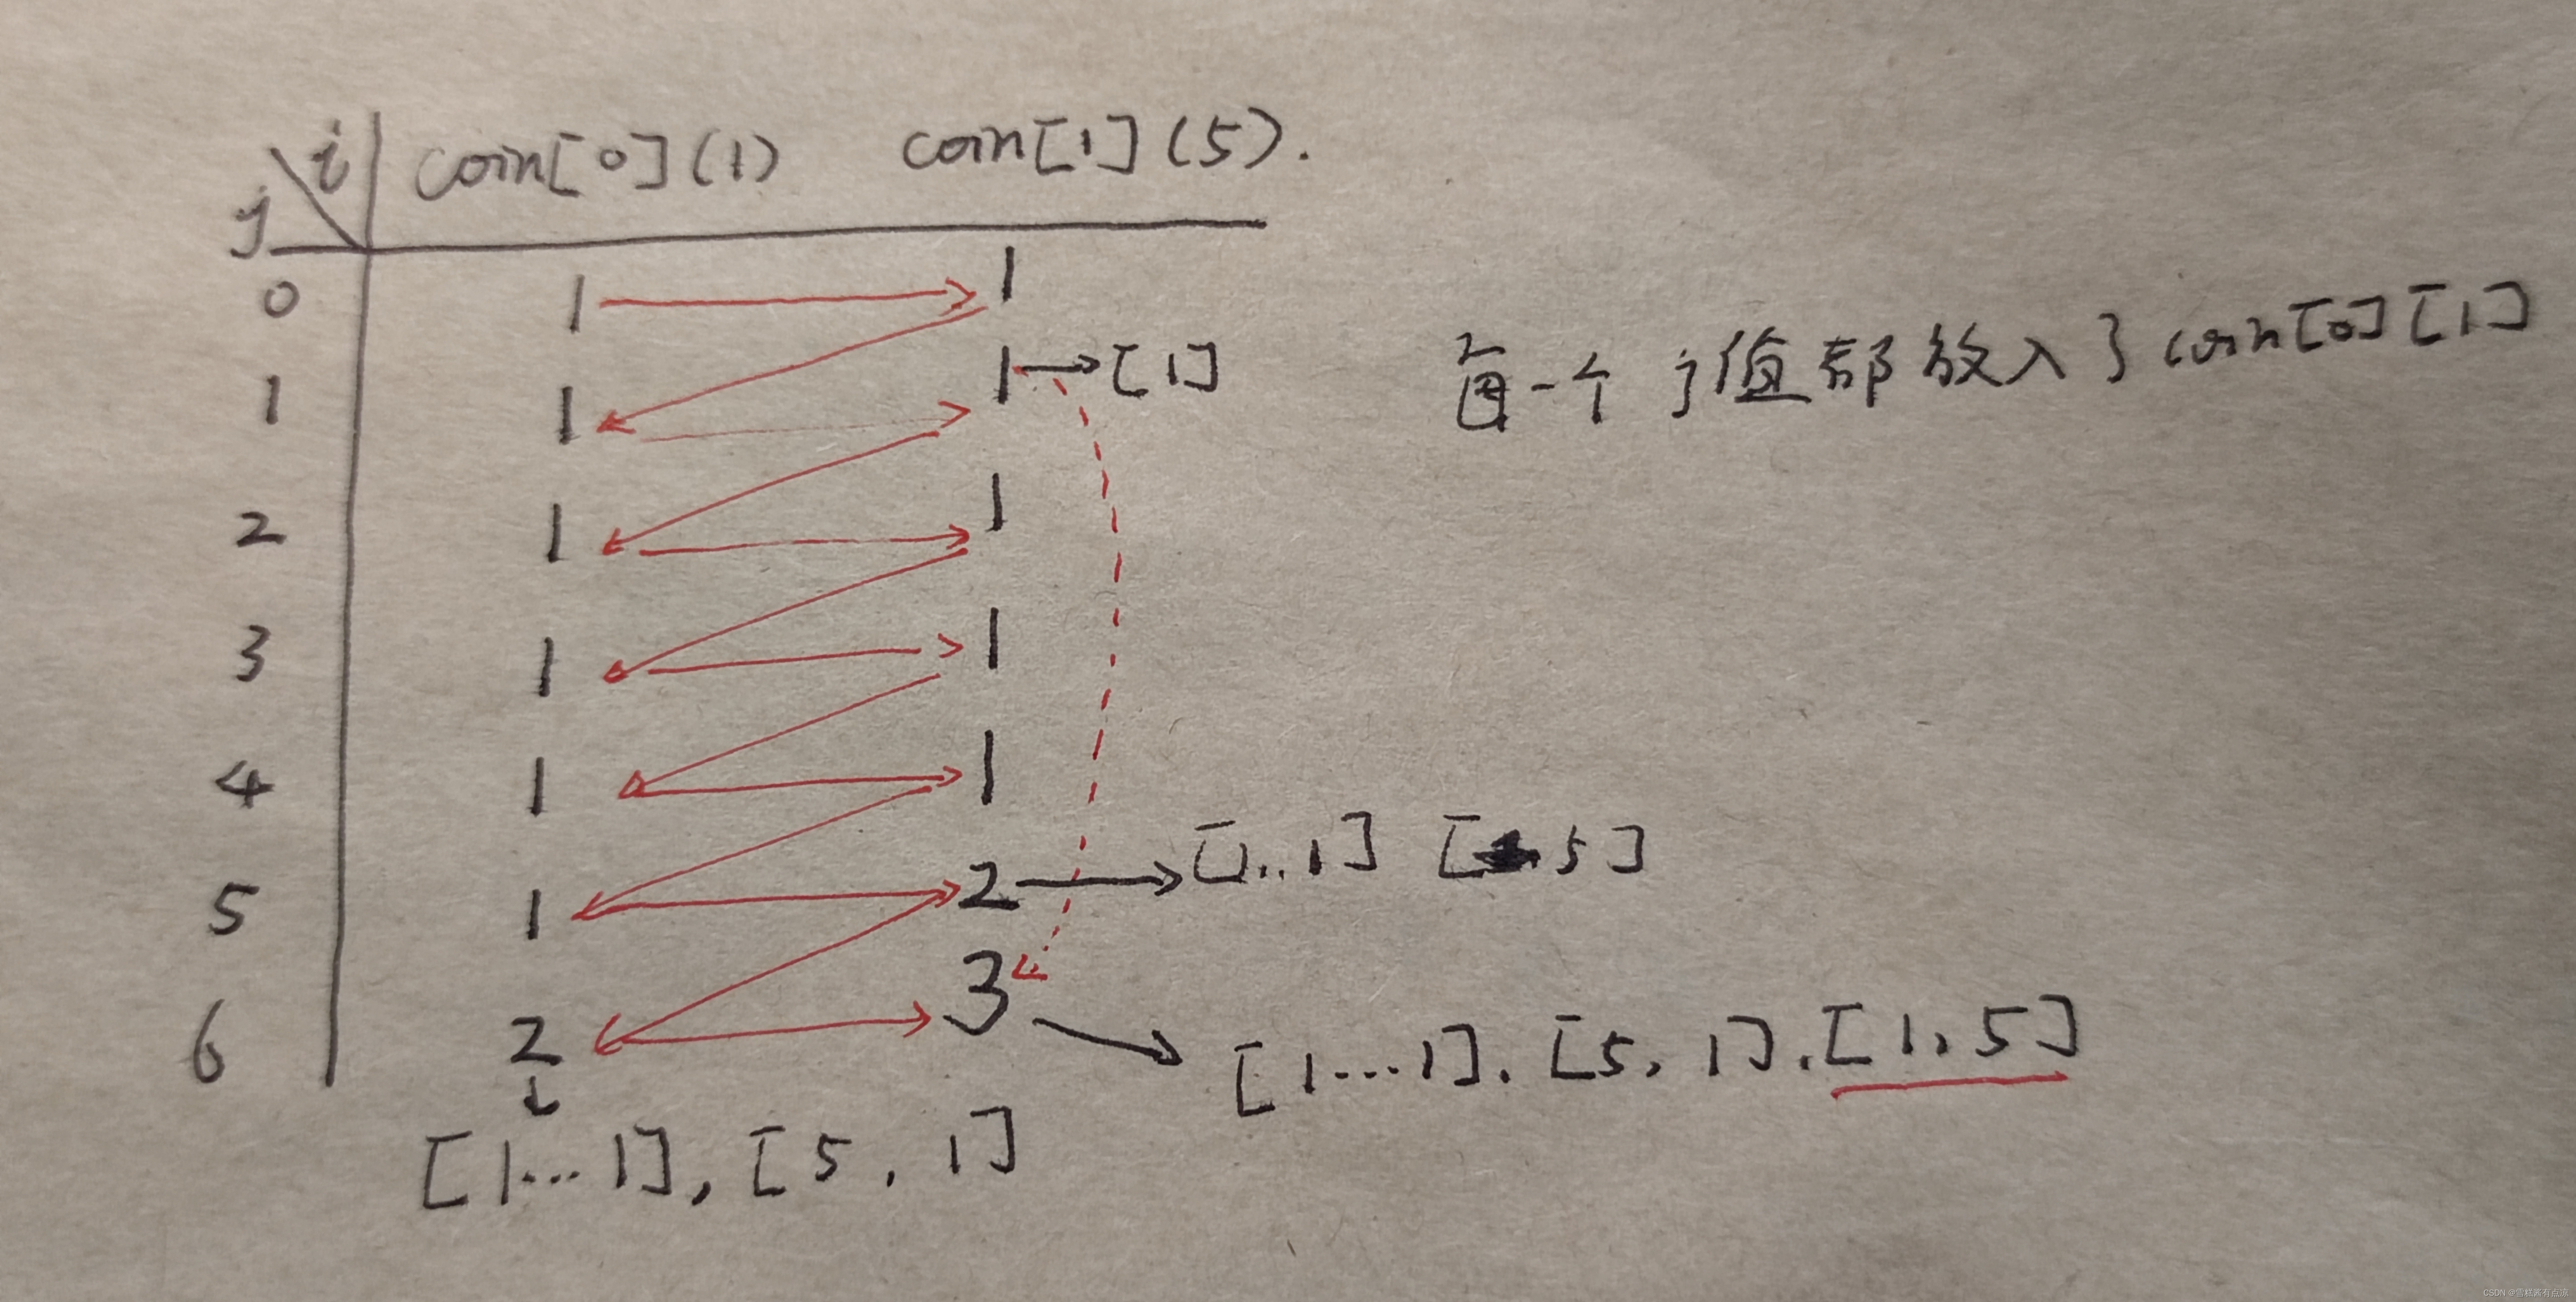 i coin[0](1) coin[1](5).
j
0 1 1
1 1 1→[1] 每一个j值都放入了coin[0][1]
2 1 1
3 1 1
4 1 1
5 1 2→[1..1] [5]
6 2 3→[1...1].[5,1].[1,5]
[1...1],[5,1]